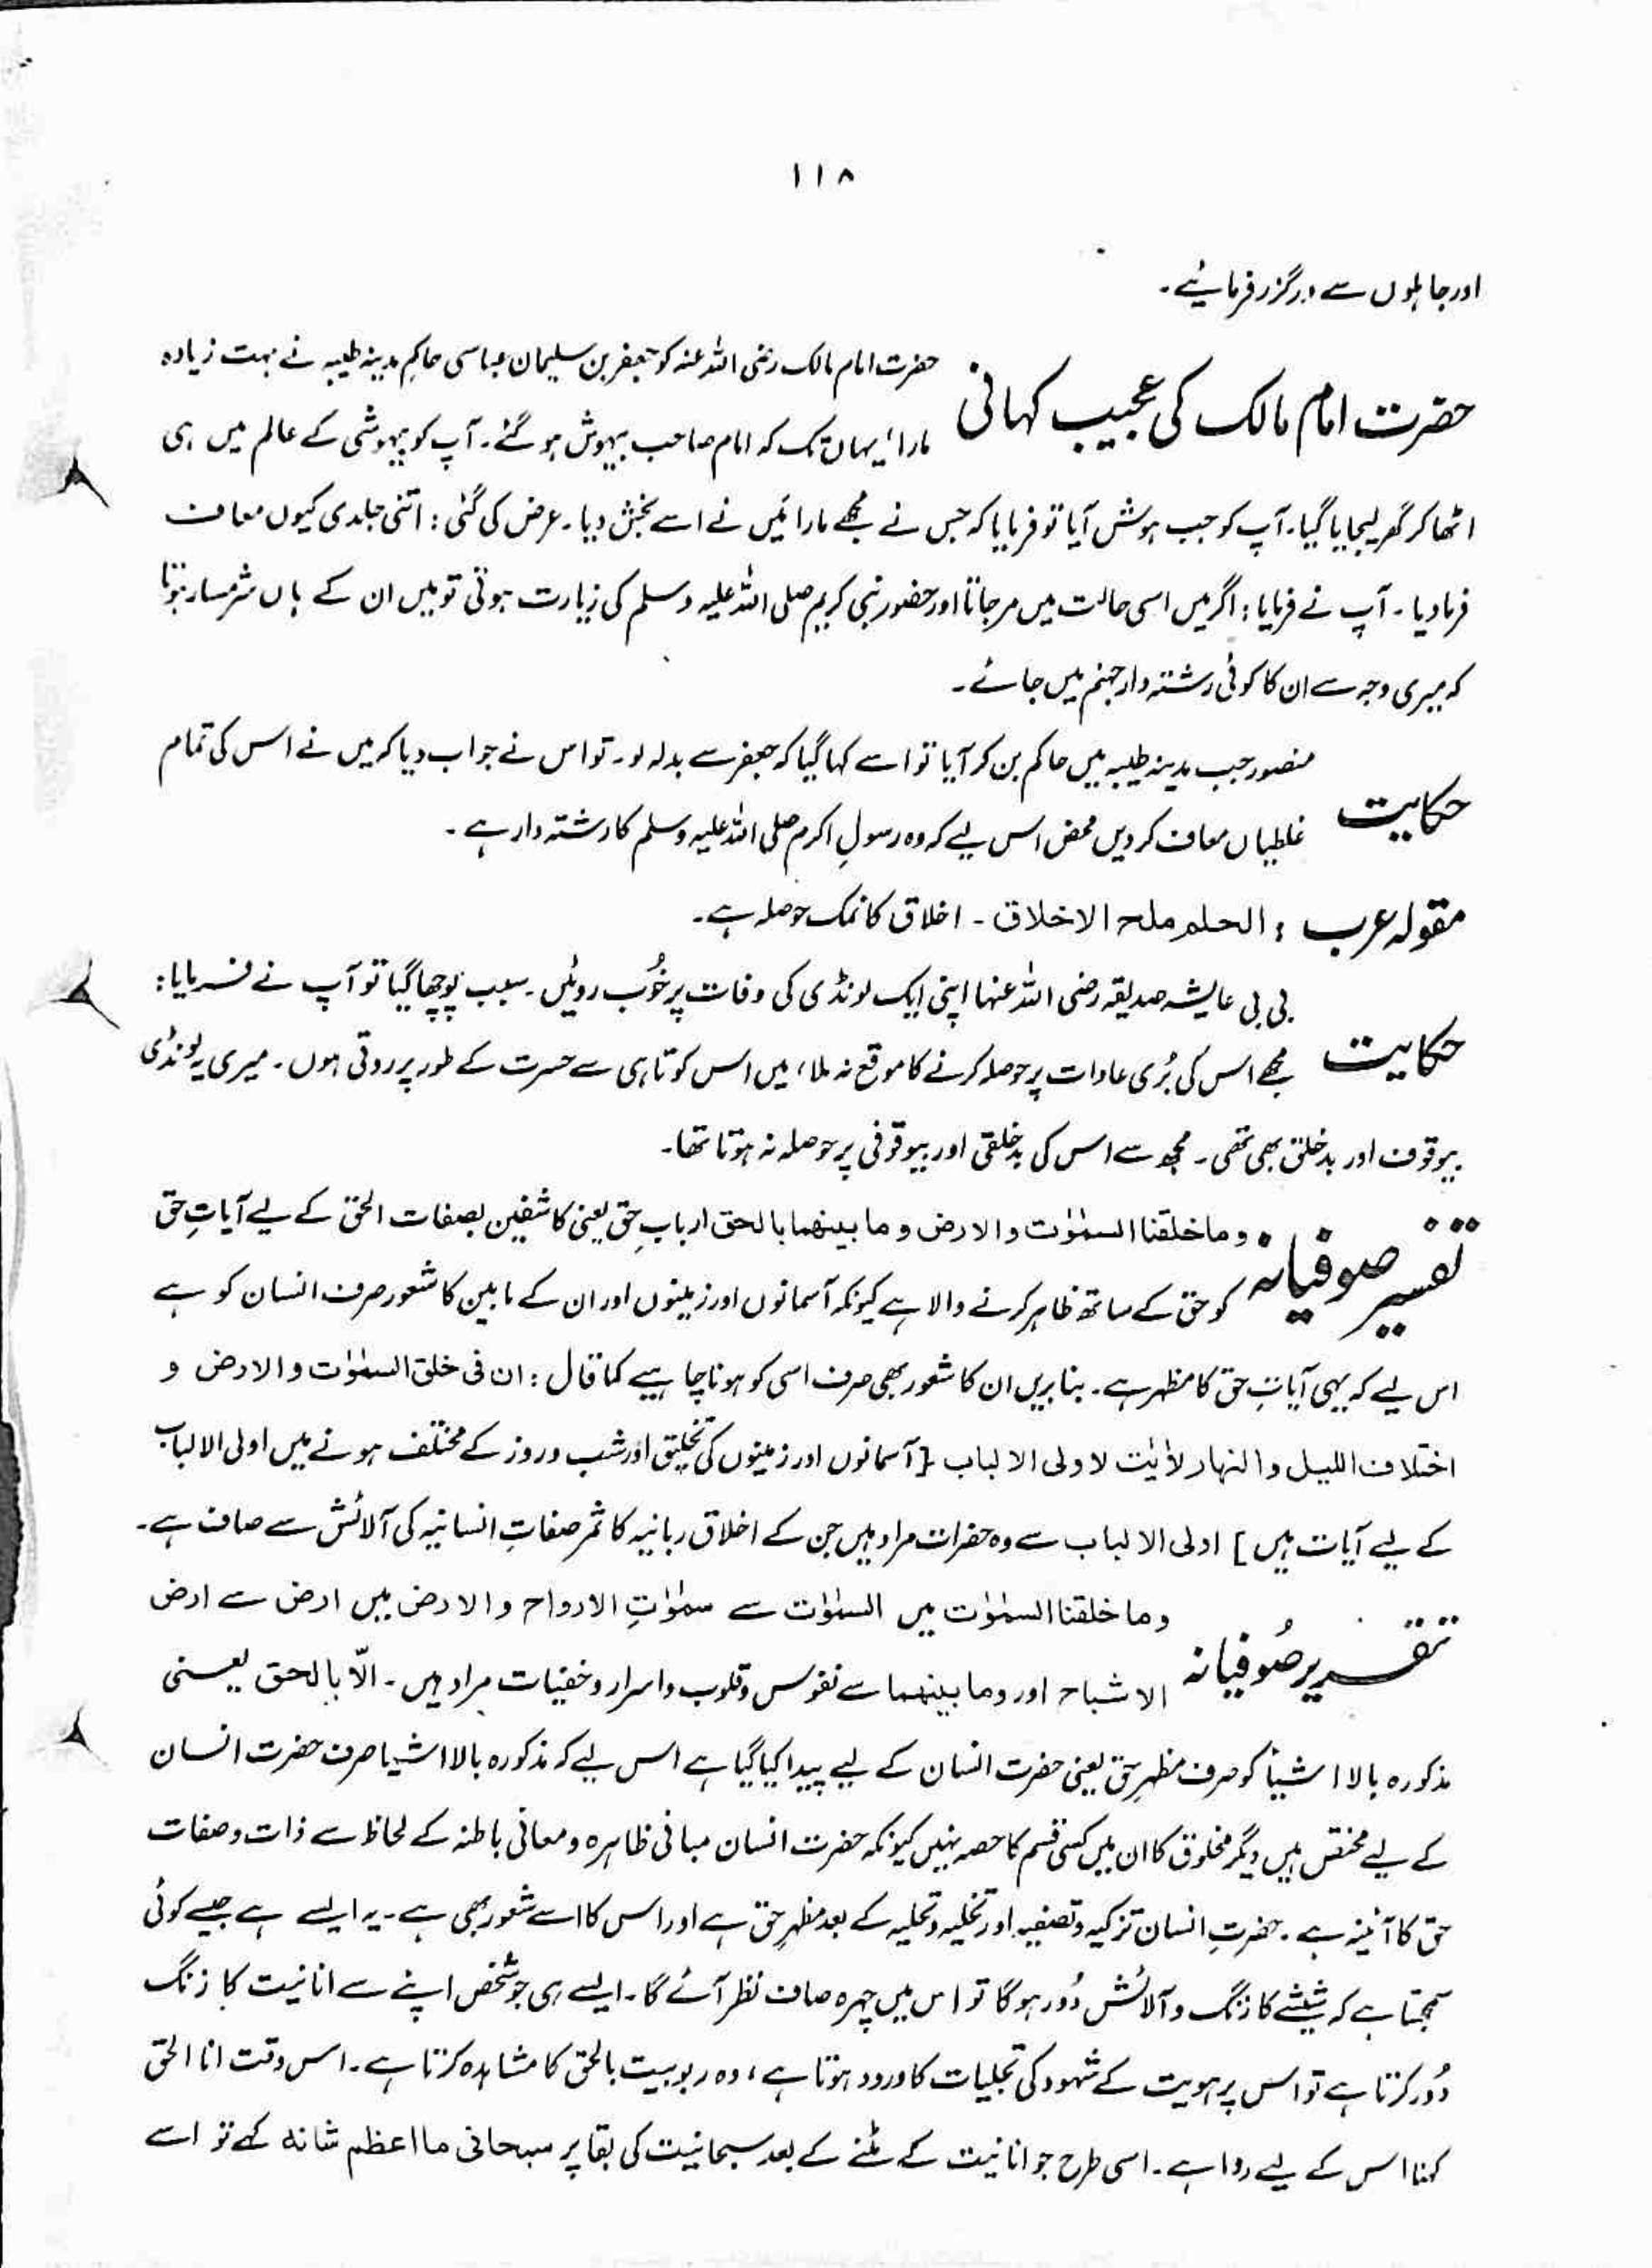 ۱۱۸
اور جاہلوں سے درگزر فرمائیے۔
حضرت امام مالک کی عجیب کہانی
حضرت امام مالک رضی اللہ عنہ کو جعفر بن سلیمان عباسی حاکمِ مدینہ طیبہ نے بہت زیادہ
مارا یہاں تک کہ امام صاحب بیہوش ہو گئے۔ آپ کو بیہوشی کے عالم میں ہی
اٹھا کر گھر لیجایا گیا۔ آپ کو جب ہوش آیا تو فرمایا کہ جس نے مجھے مارا میں نے اسے بخش دیا۔ عرض کی گئی: اتنی جلدی کیوں معاف
فرما دیا۔ آپ نے فرمایا: اگر میں اسی حالت میں مرجاتا اور حضور نبی کریم صلی اللہ علیہ وسلم کی زیارت ہوتی تو میں ان کے ہاں شرمسار ہوتا
کہ میری وجہ سے ان کا کوئی رشتہ دار جہنم میں جائے۔
حکایت
منصور جب مدینہ طیبہ میں حاکم بن کر آیا تو اسے کہا گیا کہ جعفر سے بدلہ لو۔ تو اس نے جواب دیا کہ میں نے اس کی تمام
غلطیاں معاف کر دیں محض اس لیے کہ وہ رسولِ اکرم صلی اللہ علیہ وسلم کا رشتہ دار ہے۔
مقولہ عرب : الحلم ملح الاخلاق ۔ اخلاق کا نمک حوصلہ ہے۔
حکایت
بی بی عایشہ صدیقہ رضی اللہ عنہا اپنی ایک لونڈی کی وفات پر خُوب روئیں۔ سبب پوچھا گیا تو آپ نے فرمایا:
مجھے اس کی بُری عادات پر حوصلہ کرنے کا موقع نہ ملا، میں اس کوتاہی سے حسرت کے طور پر روتی ہوں۔ میری یہ لونڈی
بیوقوف اور بدخلق بھی تھی۔ مجھ سے اس کی بدخلقی اور بیوقوفی پر حوصلہ نہ ہوتا تھا۔
تفسیر صوفیانہ
وما خلقنا السمٰوٰت والارض وما بینھما بالحق اربابِ حق یعنی کاشفین بصفات الحق کے لیے آیاتِ حق
کو حق کے ساتھ ظاہر کرنے والا ہے کیونکہ آسمانوں اور زمینوں اور ان کے مابین کا شعور صرف انسان کو ہے
اس لیے کہ یہی آیاتِ حق کا مظہر ہے۔ بنا بریں ان کا شعور بھی صرف اسی کو ہونا چاہیے کما قال : ان فی خلق السمٰوٰت والارض و
اختلاف اللیل والنھار لاٰیٰت لاولی الالباب [آسمانوں اور زمینوں کی تخلیق اور شب و روز کے مختلف ہونے میں اولی الالباب
کے لیے آیات ہیں] اولی الالباب سے وہ حضرات مراد ہیں جن کے اخلاق ربانیہ کا ثمر صفاتِ انسانیہ کی آلائش سے صاف ہے۔
تقریر صُوفیانہ
وما خلقنا السمٰوٰت میں السمٰوٰت سے سمٰوٰتِ الارواح والارض میں ارض سے ارض
الاشباح اور وما بینھما سے نفوس و قلوب و اسرار و خفیات مراد ہیں۔ الّا بالحق یعنی
مذکورہ بالا اشیأ کو صرف مظہرِ حق یعنی حضرت انسان کے لیے پیدا کیا گیا ہے اس لیے کہ مذکورہ بالا اشیا صرف حضرت انسان
کے لیے مختص ہیں دیگر مخلوق کا ان میں کسی قسم کا حصہ نہیں کیونکہ حضرت انسان مبانی ظاہرہ و معانی باطنہ کے لحاظ سے ذات و صفات
حق کا آئینہ ہے۔ حضرتِ انسان تزکیہ و تصفیہ اور تخلیہ و تحلیہ کے بعد مظہرِ حق ہے اور اس کا اسے شعور بھی ہے۔ یہ ایسے ہے جیسے کوئی
سمجھتا ہے کہ شیشے کا زنگ و آلائش دُور ہوگا تو اس میں چہرہ صاف نظر آئے گا۔ ایسے ہی جو شخص اپنے سے انانیت کا زنگ
دُور کرتا ہے تو اس پر ہویت کے شہود کی تجلیات کا ورود ہوتا ہے، وہ ربوبیت بالحق کا مشاہدہ کرتا ہے۔ اس وقت انا الحق
کہنا اس کے لیے روا ہے۔ اسی طرح جو انانیت کے مٹنے کے بعد سبحانیت کی بقا پر سبحانی ما اعظم شانہ کہے تو اسے